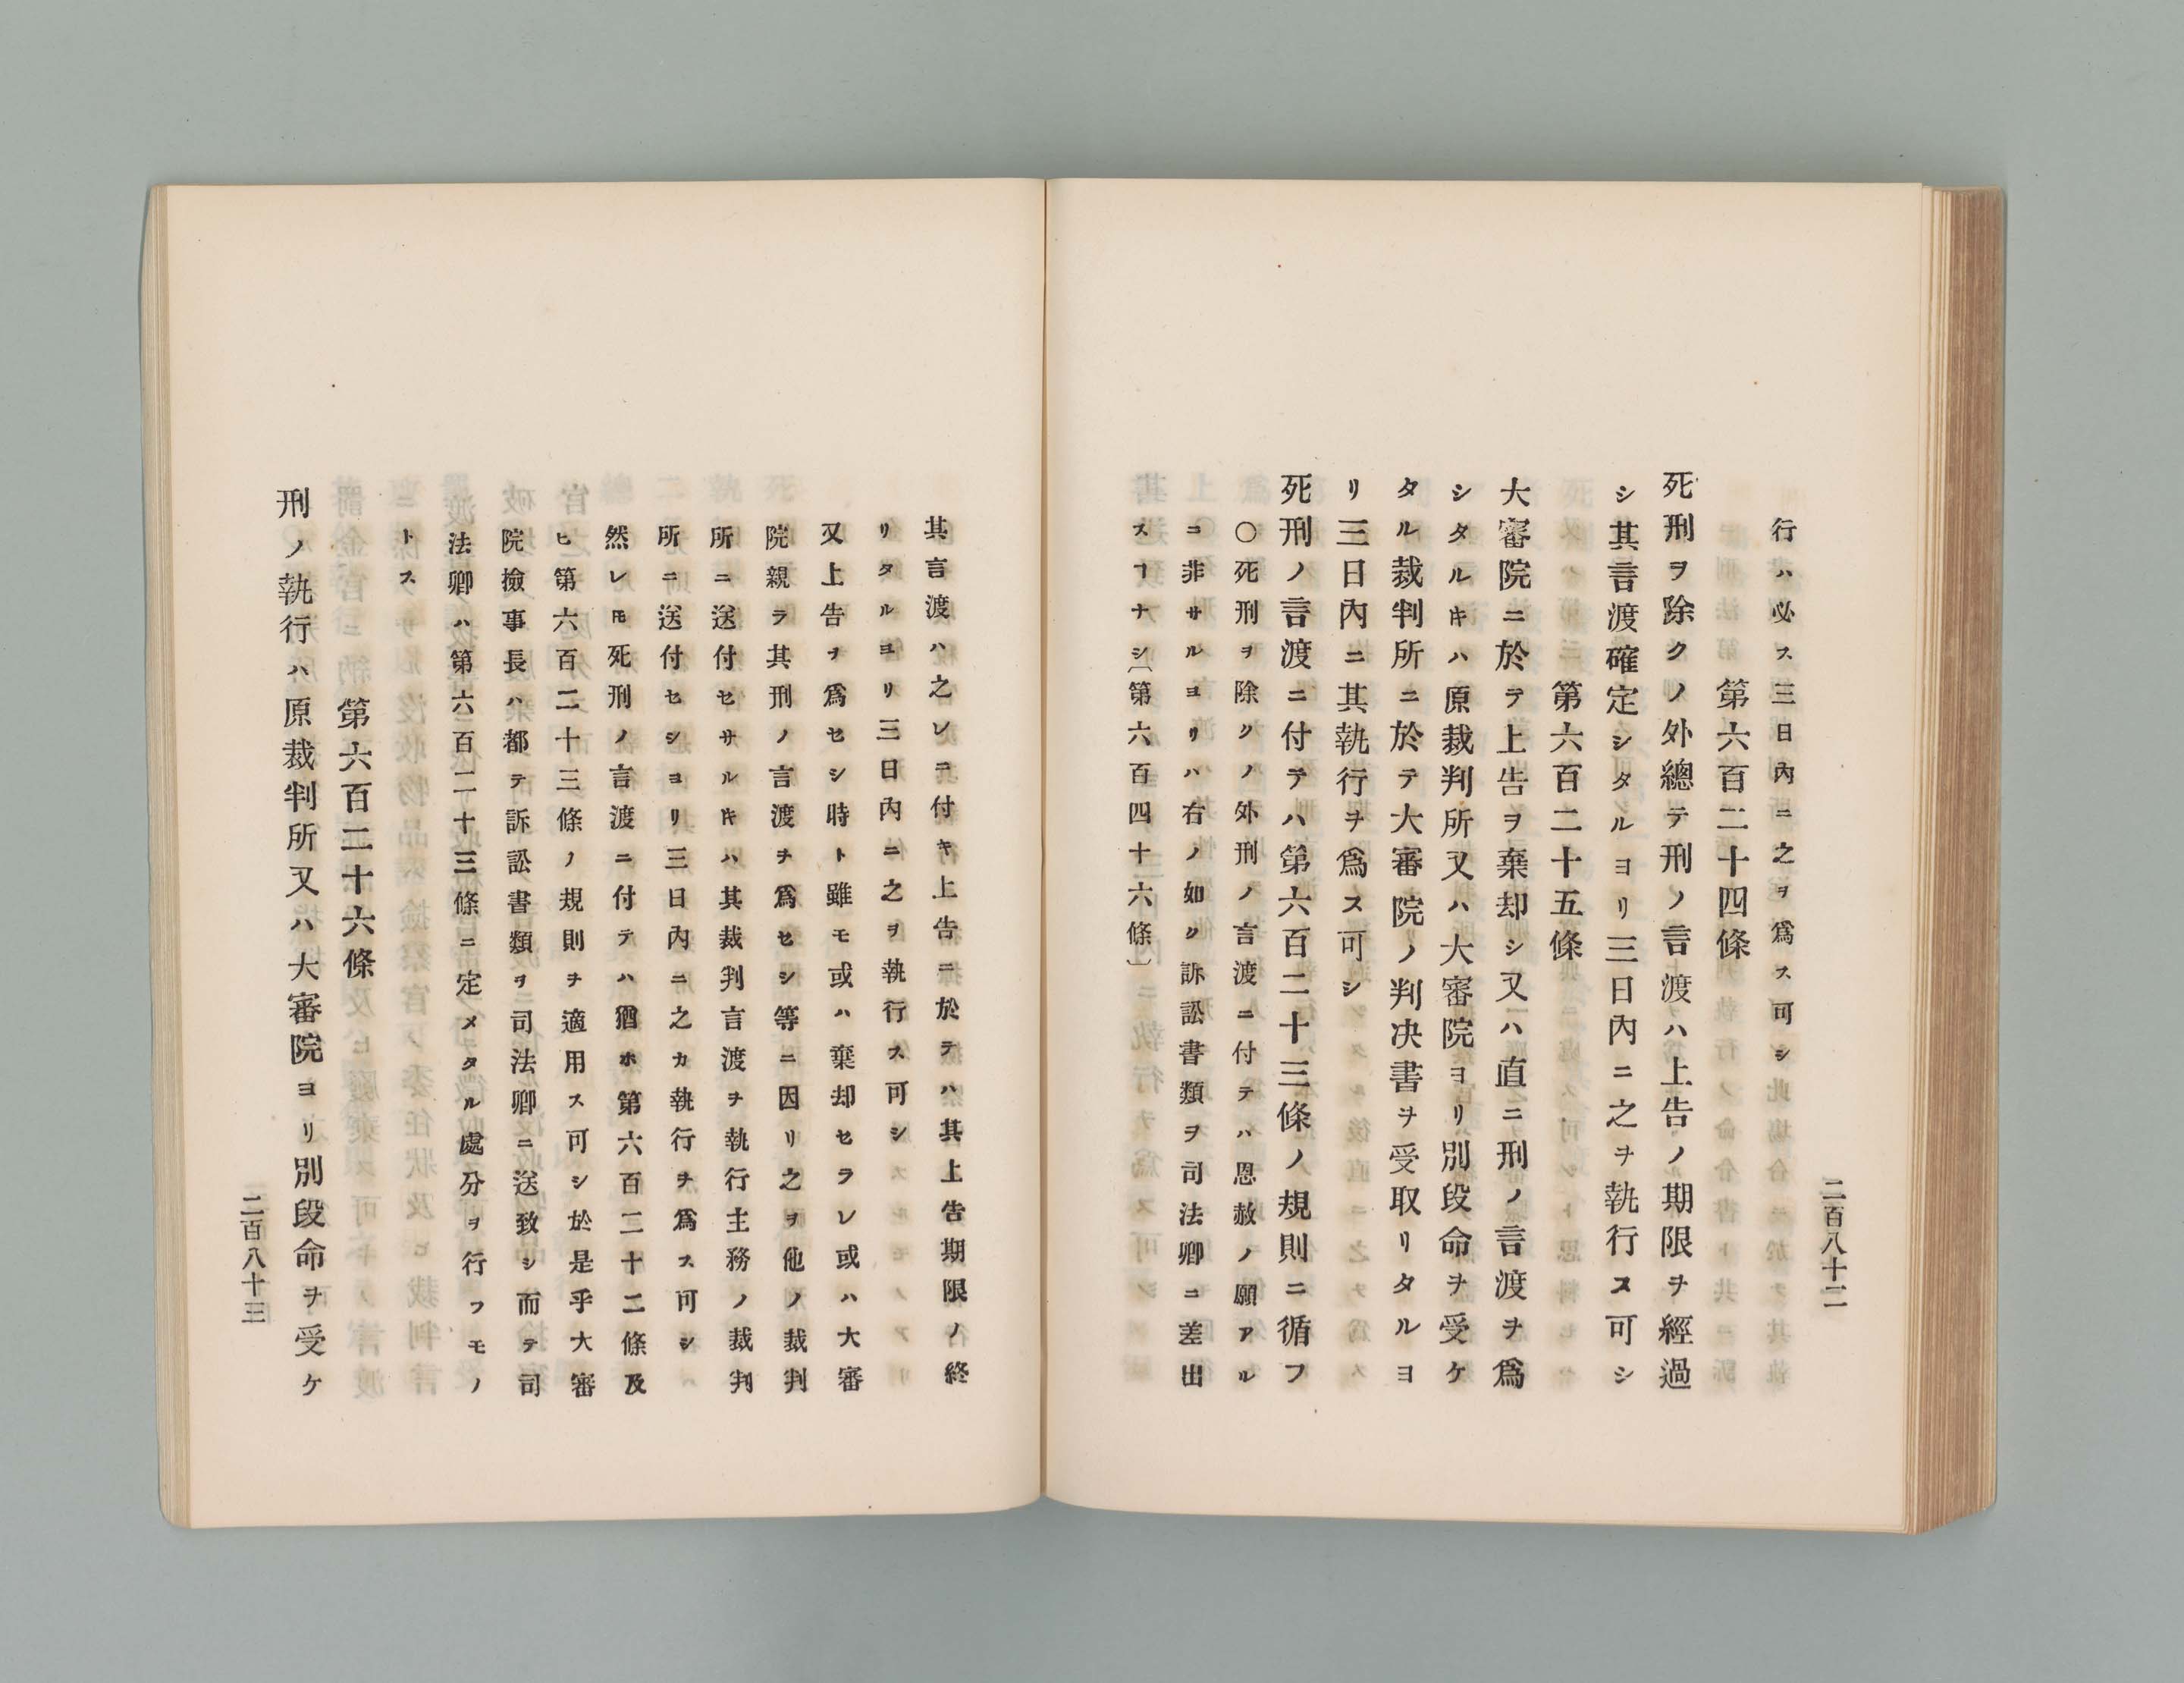 二百八十二
行ハ必ス三日內ニ之ヲ爲ス可シ
第六百二十四條
死刑ヲ除クノ外總テ刑ノ言渡ハ上告ノ期限ヲ經過
シ其言渡確定シタルヨリ三日內ニ之ヲ執行ス可シ
第六百二十五條
大審院ニ於テ上告ヲ棄却シ又ハ直ニ刑ノ言渡ヲ爲
シタルキハ原裁判所又ハ大審院ヨリ別段命ヲ受ケ
タル裁判所ニ於テ大審院ノ判决書ヲ受取リタルヨ
リ三日內ニ其執行ヲ爲ス可シ
死刑ノ言渡ニ付テハ第六百二十三條ノ規則ニ循フ
〇死刑ヲ除クノ外刑ノ言渡ニ付テハ恩赦ノ願アル
ニ非サルヨリハ右ノ如ク訴訟書類ヲ司法卿ニ差出
スヿナシ〔第六百四十六條〕
其言渡ハ之レニ付キ上告ニ於テハ其上告期限ノ終
リタルヨリ三日內ニ之ヲ執行ス可シ
又上告ヲ爲セシ時ト雖モ或ハ棄却セラレ或ハ大審
院親ラ其刑ノ言渡ヲ爲セシ等ニ因リ之ヲ他ノ裁判
所ニ送付セサルキハ其裁判言渡ヲ執行主務ノ裁判
所ニ送付セシヨリ三日內ニ之カ執行ヲ爲ス可シ
然レㇳモ死刑ノ言渡ニ付テハ猶ホ第六百二十二條及
ヒ第六百二十三條ノ規則ヲ適用ス可シ於是乎大審
院撿事長ハ都テ訴訟書類ヲ司法卿ニ送致シ而テ司
法卿ハ第六百二十三條ニ定メタル處分ヲ行フモノ
トス
第六百二十六條
刑ノ執行ハ原裁判所又ハ大審院ヨリ別段命ヲ受ケ
二百八十三